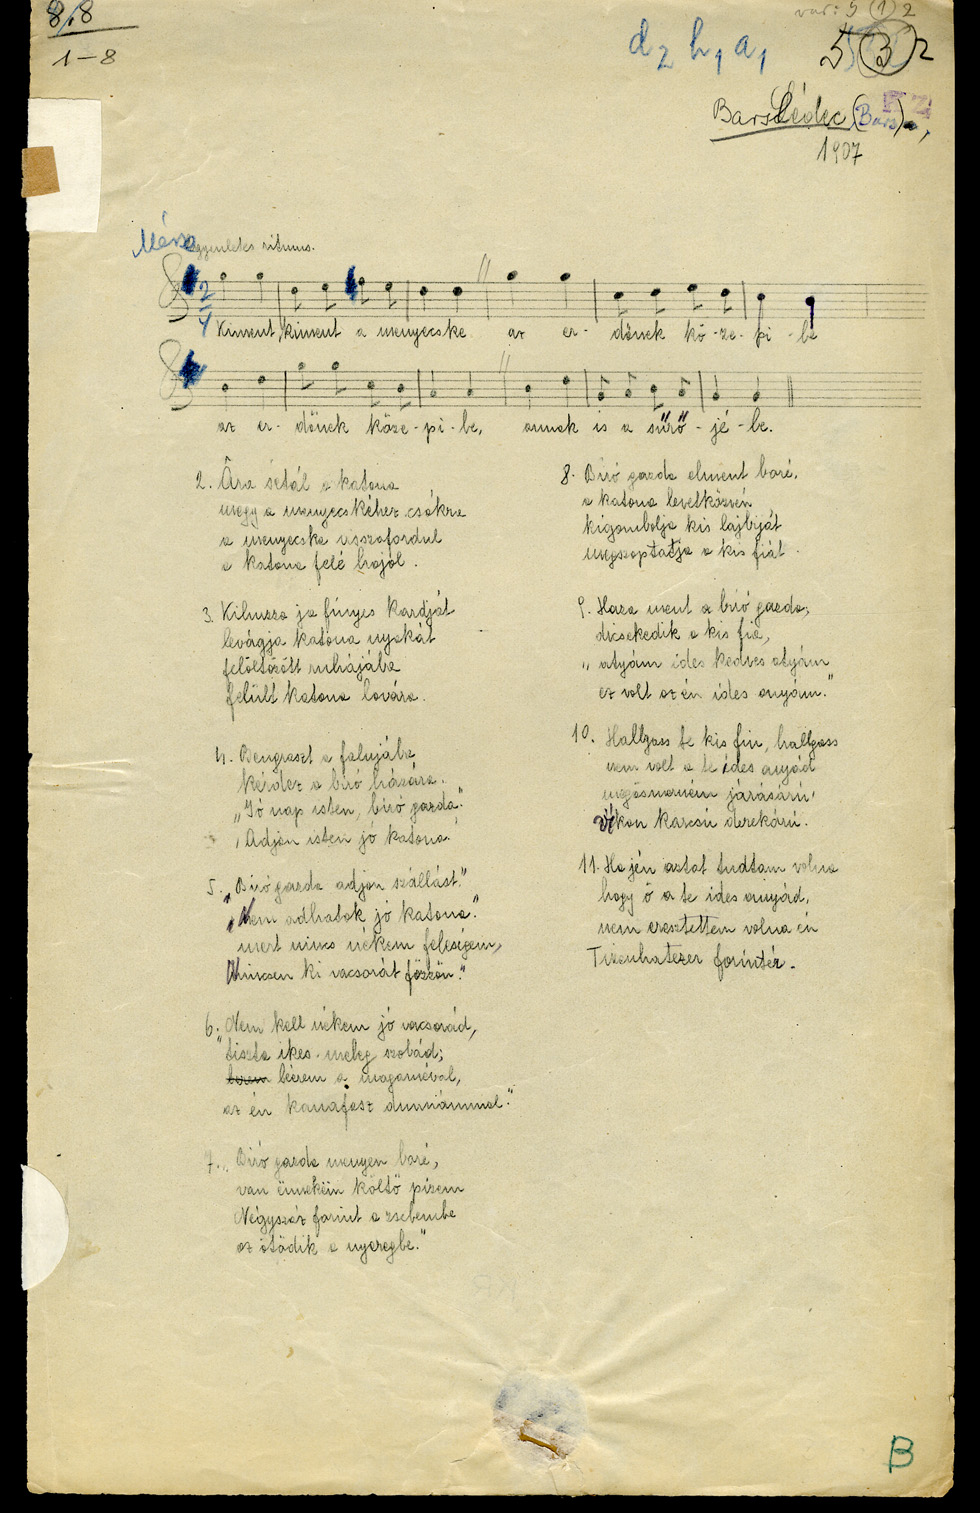 8,8
1-8
var: 5 (1) 2
d2 h1 a1
5 (3) 2
Barslédec (Bars),
1907
egyenletes ritmus.
2/4
Kiment, kiment a menyecske az er-dőnek kö-ze-pi-be
az er-dőnek köze-pi-be, annak is a sűrő-jé-be.
2. Âra sétál a katona
megy a menyecskéhez csókra
a menyecske visszafordul
a katona felé hajól.
3. Kihuzza ja fínyes kardját
levágja katona nyakát
felöltözött ruhájába
felült katona lovára.
4. Beugraszt a falujába
kérdez a bíró házára.
"Jó nap isten, bíró gazda."
"Adjon isten jó katona."
5. "Bíró gazda adjon szállást."
"Nem adhatok jó katona."
mert nincs nékem feleségem,
Nincsen ki vacsorát főzzön."
6. "Nem kell nékem jó vacsorád,
tiszta ikes-meleg szobád;
beérem a magaméval,
az én kanafasz dunnámmal."
7. "Bíró gazda menyen baré,
van önnekëin költő pízem
Négyszáz forint a zsebembe
az ötödik a nyeregbe."
8. Bíró gazda elment baré,
a katona levetkőzvén
kigombolja kis lajbiját
megszoptatja a kis fiát.
9. Haza ment a bíró gazda,
dicsekedik a kis fia,
"atyám ides kedves atyám
ez volt az én ides anyám."
10. Hallgass te kis fiu, hallgass
nem volt a te ides anyád
megösmerném járásárú,
vékon karcsú derekárú.
11. Ha jén aztat tudtam volna
hogy ő a te ides anyád,
nem eresztettem volna én
Tizenhatezer forintér.
B